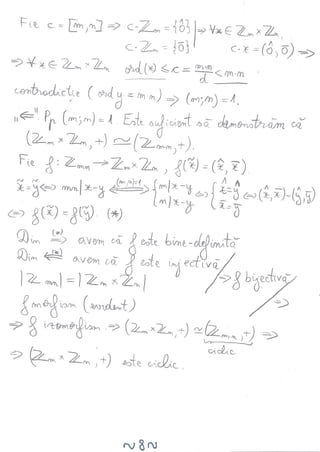 Fie c = [m,n] ⇒ c·ℤm = {0̂} | ⇒ ∀x∈ℤm×ℤn
c·ℤn = {0̄} | c·x = (0̂, 0̄) ⇒
⇒ ∀x∈ℤm×ℤn ord(x) ≤ c = m·n/d < m·n
contradicție (ord y = mn) ⇒ (m;n) = 1.
„⇐" Pp (m;n) = 1 Este suficient să demonstrăm că
(ℤm×ℤn, +) ≃ (ℤmn, +).
Fie f: ℤmn → ℤm×ℤn, f(x̃) = (x̂, x̄).
x̃ = ỹ ⇔ mn | x-y ⇔ (m,n)=1 { m | x-y n | x-y ⇔ { x̂ = ŷ x̄ = ȳ ⇔ (x̂, x̄) = (ŷ, ȳ)
⇔ f(x̃) = f(ỹ). (*)
Din (*) ⇒ avem că f este bine-definită
Din (*) ⇐ avem că f este injectivă
|ℤmn| = |ℤm×ℤn| ⇒ f bijectivă
f morfism (evident) ⇒
⇒ f izomorfism ⇒ (ℤm×ℤn, +) ≃ (ℤm·n, +) ⇒
ciclic
⇒ (ℤm×ℤn, +) este ciclic.
~8~